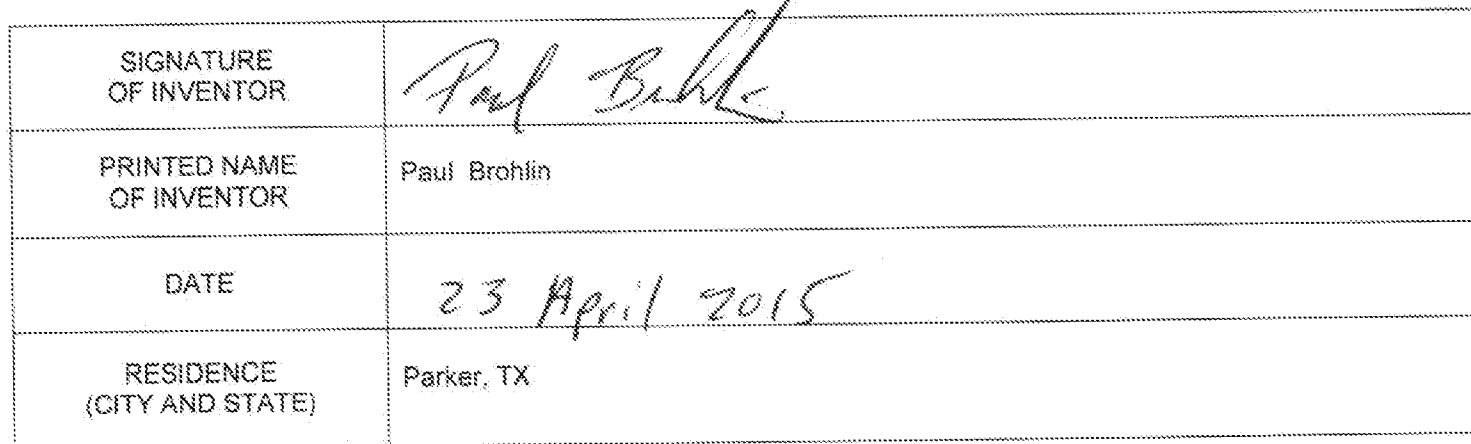 SIGNATURE
OF INVENTOR
Paul
PRINTED NAME
OF INVENTOR
Paul Brohlin
DATE
23 April 2015
RESIDENCE
(CITY AND STATE)
Parker, TX